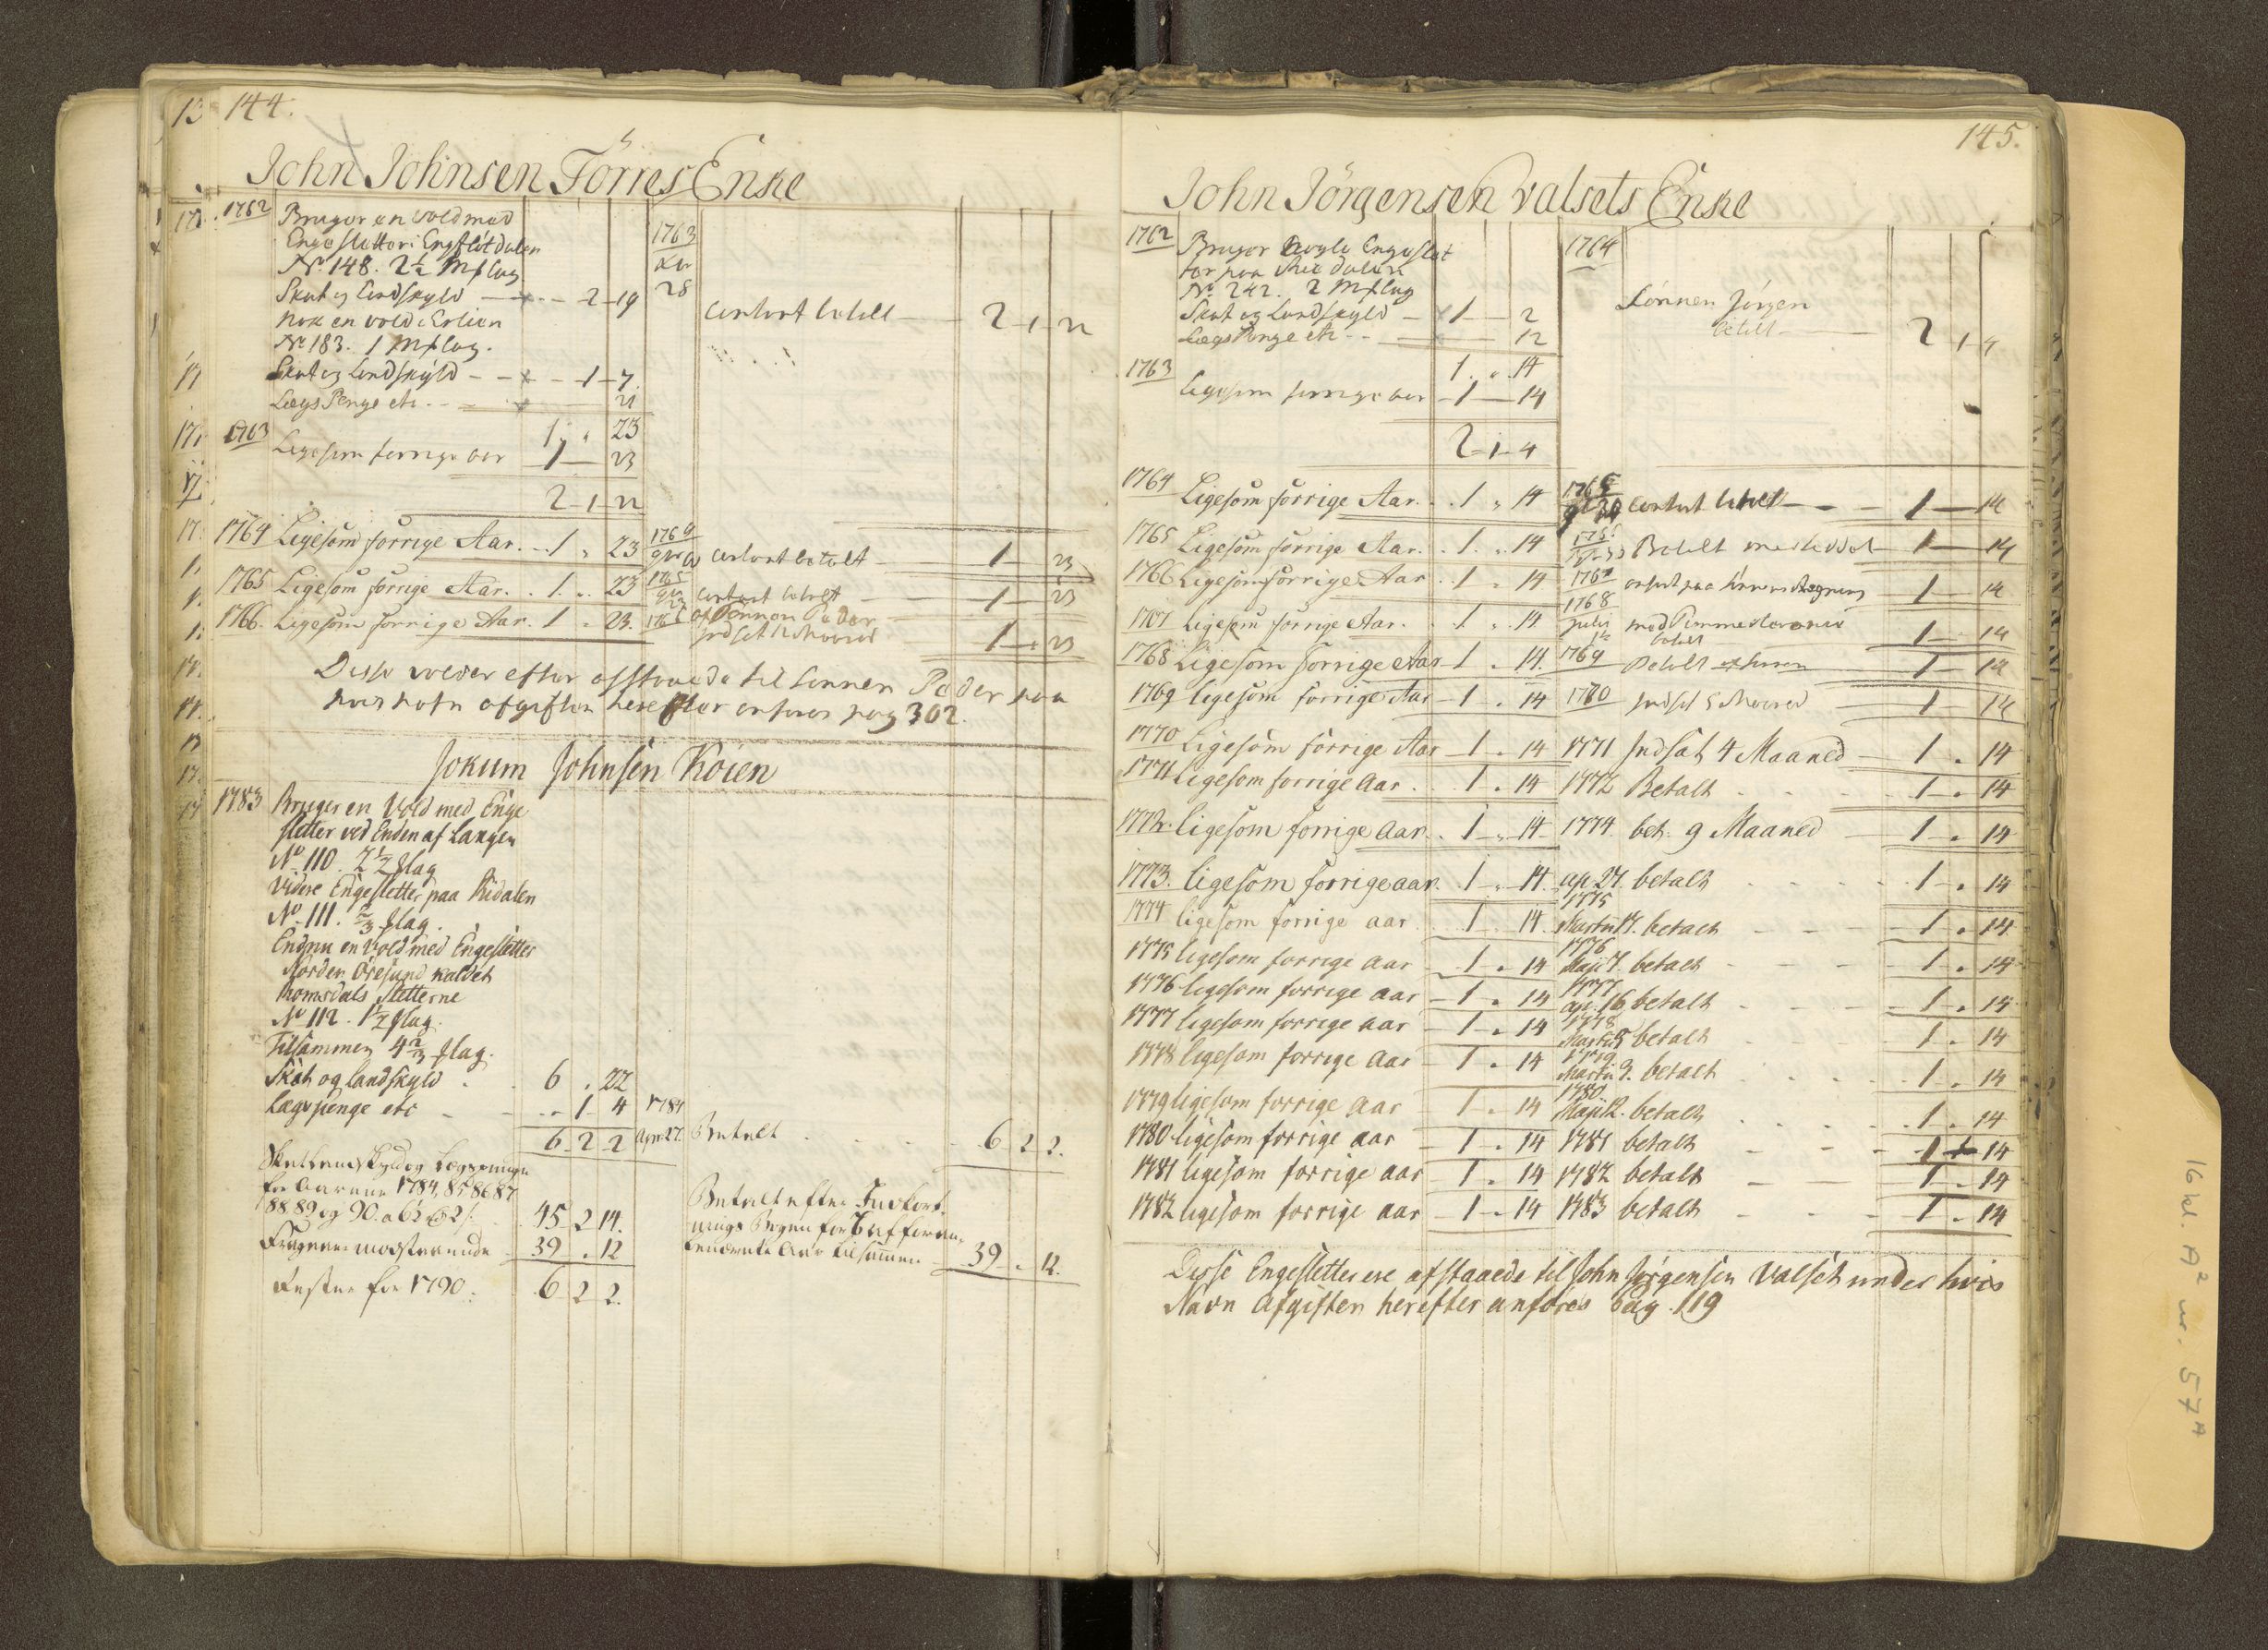 144.
John Johnsen Törres Enke
1762 Bruger en vold med
Enge sletter i Engslót dalen
No. 148. 2½ Mslag
Skat og Landskyld - 2 - 19
Nok en vold i Erlien
No 183. 1 Mslag.
Skat og Landskyld - - 1 - 7.
LægsPenge etc - - 21
1 " 23
1763 Ligesom forrige aar 1 - 23
2 - 1 - 22
1763
28
contant betalt - 2 - 1 - 22
1764 Ligesom forrige Aar. - 1 " 23
1764 contant betalt - 1 - 23
1765 Ligesom forrige Aar. . 1 . . 23
1765 contant betalt - 1 - 23
1766. Ligesom forrige Aar. 1 " 23.
af Sönnen Peder
1 - " 23
Disse volder efter afstaaede til Sönnen Peder paa
hvis nafn afgiften hereffter anføres pag 302.
Jokum Johnsen Köien
1783 Bruger en Vold med Enge
sletter ved Enden af Langen
No. 110. 2½ slag
Videre Engesletter paa Ridalen
No. 111. ⅔ slag.
Endnu en Vold med Engesletter
Norden Öresund kaldet
Romsdals Sletterne
No 112. 1½ slag.
Tilsammen 4⅔ slag.
Skat og landskyld . . 6 . 22
Lægspenge etc - - " 1 - 4
6 - 2 - 2
1784
Apr: 27. Betalt . . . . 6 2 2.
Skatt landskyld og Lægspenge
for Aarene 1784, 85 86 87
88 89 og 90. a 6 2 2 45 2 14.
39 . 12
Rester for 1790. 6 2 2.
Betalt efter Indkort-
tilsammen - 39 . 12.
145.
John Jörgensen Valsets Enke
1762 Bruger nogle Engeslet
ter paa Rie dalen
No. 242. 2 Mslag
Skat og Landskyld - 1 - 2
LægsPenge etc - - 12
1 . " . 14
1763
Ligesom forrige aar - 1 - 14
2 - 1 - 4
1764
Sönnen Jörgen
betalt - 2 - 1 - 4
1764 Ligesom forrige Aar. . 1 " 14
contant betalt - - - 1 - 14
1765 Ligesom forrige Aar. . 1. . . 14
Betalt - 1 - 14
1766 Ligesom forrige Aar . 1 . 14
1 - 14
1767 Ligesom forrige Aar. . 1 . . 14
1768
Julii
betalt 1 - 14
1768 Ligesom forrige Aar 1 . 14.
1769 betalt 1 - 14
1769 ligesom forrige Aar - 1 . 14
1770 1 - 14
1770 Ligesom forrige Aar - 1 . 14
1771 Indsat 4 Maaned - 1 . 14
1771 Ligesom forrige Aar . . 1 . 14
1772 Betalt . . . . 1 - . 14
1772. ligesom forrige Aar. . 1 - . 14
1774. bet: 9 Maaned - 1 - . 14
1773. ligesom forrige aar. 1 . 14.
ap. 27. betalt . . . . 1 - . 14
1774 ligesom forrige aar . 1 . 14.
1775
Martii 17. betalt - - - 1 . 14
1775 ligesom forrige aar - 1 . 14
1776
Maji 7. betalt - - - 1 . 14
1776 ligesom forrige aar - 1 . 14
1777
ap: 16 betalt - - - 1 . 14
1777 ligesom forrige aar - 1 . 14
1778
betalt - - 1 . 14
1778 ligesom forrige aar - 1 . 14
1779
Martii 9. betalt . . . 1 . 14
1779 ligesom forrige aar - 1 . 14
1780
Maji 12. betalt . . . 1 . 14
1780 ligesom forrige aar - 1 . 14
1781 betalt - - - 1 14
1781 ligesom forrige aar - 1 . 14
1782 betalt - - 1 . 14
1782 ligesom forrige aar - 1 . 14
1783 betalt - - - 1 . 14
Disse Engesletter ere afstaaede til John Jörgensen Valset under hvis
Navn Afgiften herefter anföres Pag. 119
16 kl. A² nr. 57A